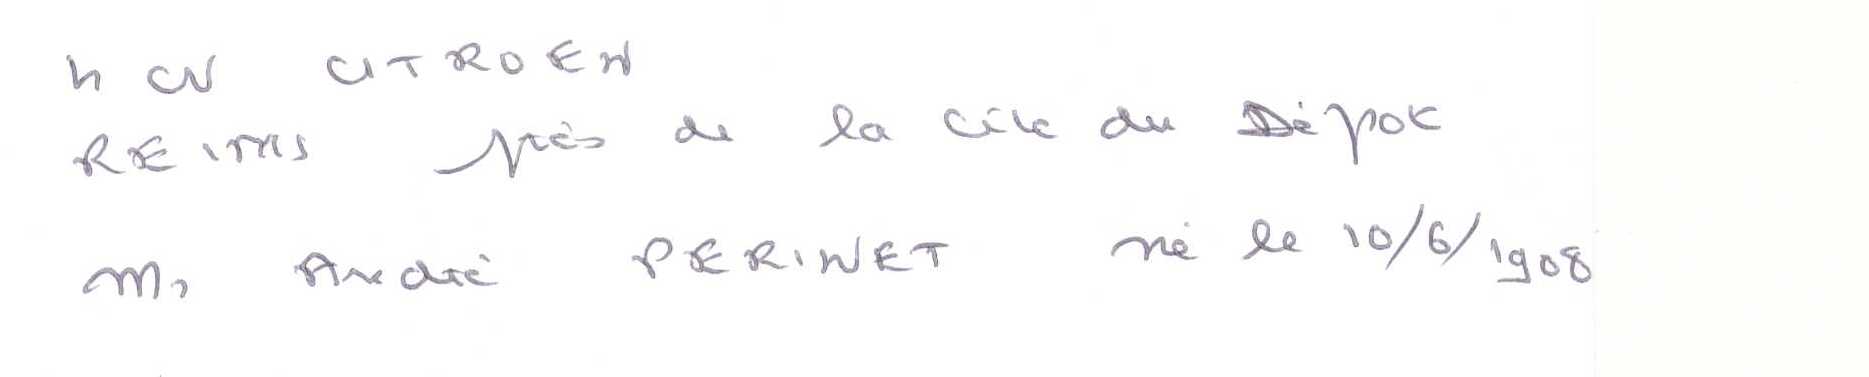 4 CV CITROEN
REIMS près de la cité du Dépot
Mr André PERINET né le 10/6/1908